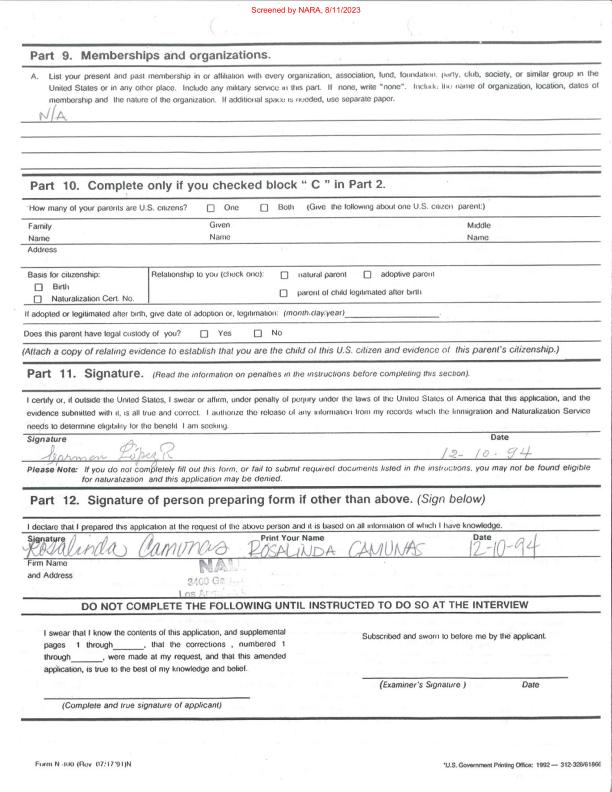 Screened by NARA, 8/11/2023
Part 9. Memberships and organizations.
A. List your present and past membership in or affiliation with every organization, association, fund, foundation, party, club, society, or similar group in the
United States or in any other place. Include any military service in this part. If none, write "none". Include the name of organization, location, dates of
membership and the nature of the organization. If additional space is needed, use separate paper.
N/A
Part 10. Complete only if you checked block " C " in Part 2.
How many of your parents are U.S. citizens? One Both (Give the following about one U.S. citizen parent:)
Family Given Middle
Name Name Name
Address
Basis for citizenship: Relationship to you (check one): natural parent adoptive parent
Birth
Naturalization Cert. No. parent of child legitimated after birth
If adopted or legitimated after birth, give date of adoption or, legitimation: (month.day.year)
Does this parent have legal custody of you? Yes No
(Attach a copy of relating evidence to establish that you are the child of this U.S. citizen and evidence of this parent's citizenship.)
Part 11. Signature. (Read the information on penalties in the instructions before completing this section).
I certify or, if outside the United States, I swear or affirm, under penalty of perjury under the laws of the United States of America that this application, and the
evidence submitted with it, is all true and correct. I authorize the release of any information from my records which the Immigration and Naturalization Service
needs to determine eligibility for the benefit I am seeking.
Signature Date
Carmen López R 12-10-94
Please Note: If you do not completely fill out this form, or fail to submit required documents listed in the instructions, you may not be found eligible
for naturalization and this application may be denied.
Part 12. Signature of person preparing form if other than above. (Sign below)
I declare that I prepared this application at the request of the above person and it is based on all information of which I have knowledge.
Signature Print Your Name Date
Rosalinda Camunas ROSALINDA CAMUNAS 12-10-94
Firm Name
and Address
3400
Los
DO NOT COMPLETE THE FOLLOWING UNTIL INSTRUCTED TO DO SO AT THE INTERVIEW
I swear that I know the contents of this application, and supplemental
pages 1 through______, that the corrections , numbered 1
through______, were made at my request, and that this amended
application, is true to the best of my knowledge and belief.
(Complete and true signature of applicant)
Subscribed and sworn to before me by the applicant.
(Examiner's Signature ) Date
Form N-400 (Rev 07/17/91)N
*U.S. Government Printing Office: 1992 — 312-328/61866